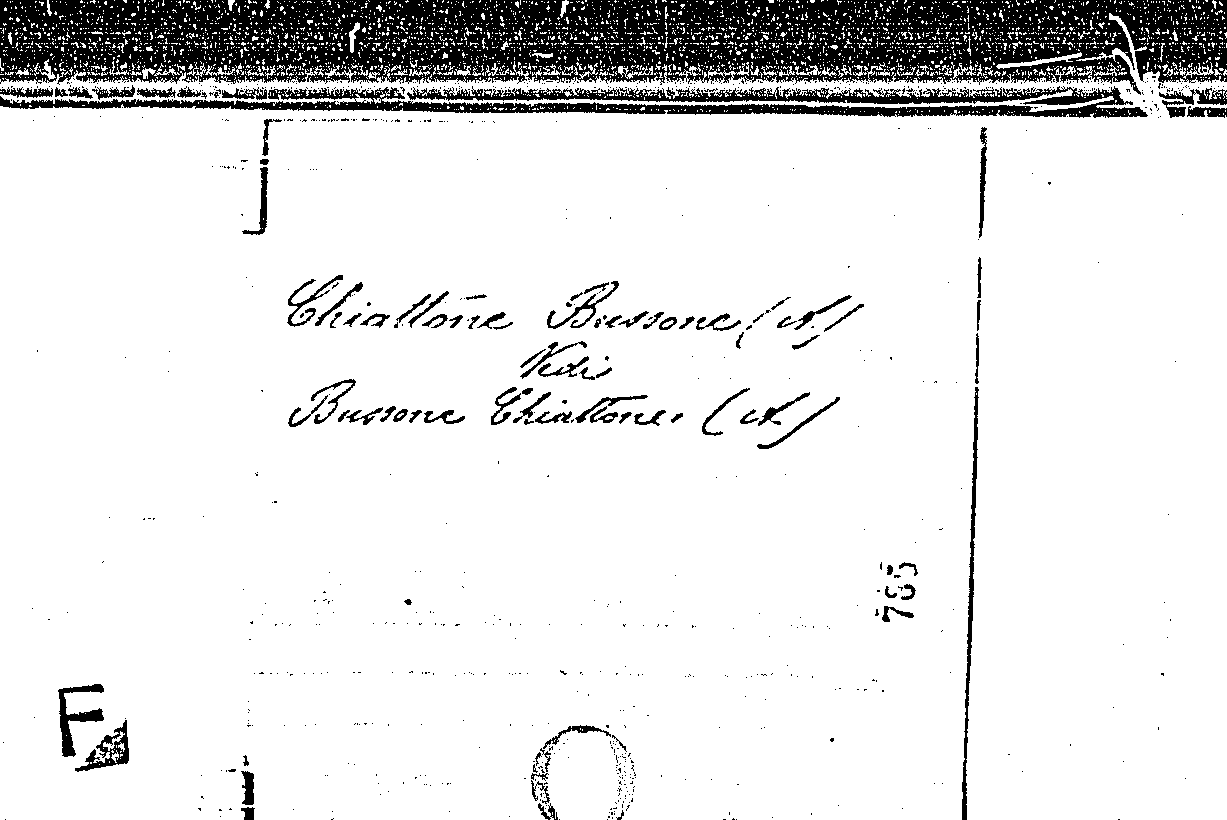 Chiattone Bussone (A.)
Vedi
Bussone Chiattone. (A.)
785
F